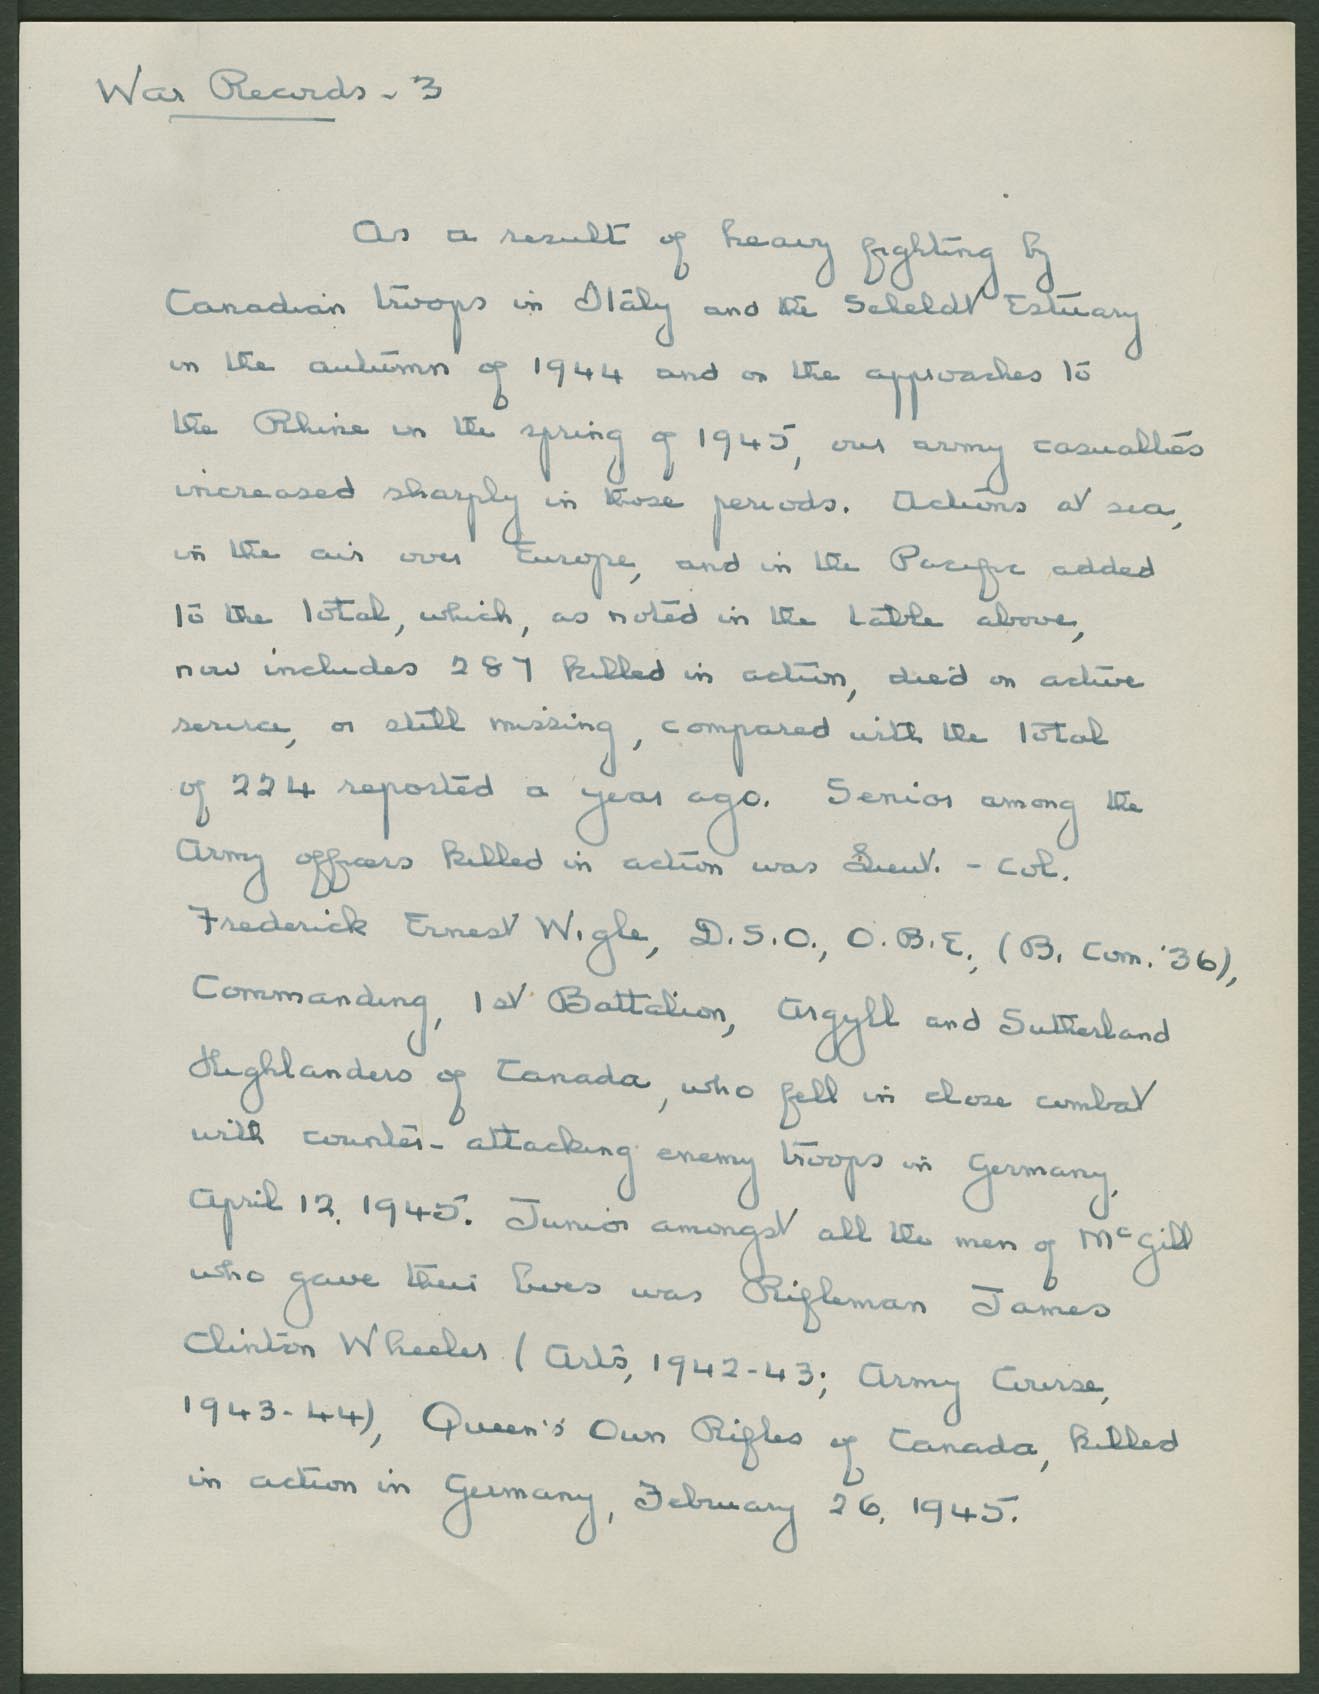 War Records - 3
As a result of heavy fighting by
Canadian troops in Italy and the Scheldt Estuary
in the autumn of 1944 and on the approaches to
the Rhine in the spring of 1945, our army casualties
increased sharply in those periods. Actions at sea,
in the air over Europe, and in the Pacific added
to the total, which, as noted in the table above,
now includes 287 killed in action, died on active
service, or still missing, compared with the total
of 224 reported a year ago. Senior among the
Army officers killed in action was Lieut. - Col.
Frederick Ernest Wigle, D.S.O., O.B.E., (B. Com. '36),
Commanding, 1st Battalion, Argyll and Sutherland
Highlanders of Canada, who fell in close combat
with counter-attacking enemy troops in Germany,
April 12, 1945. Junior amongst all the men of McGill
who gave their lives was Rifleman James
Clinton Wheeler (Arts, 1942-43; Army Course,
1943-44), Queen's Own Rifles of Canada, killed
in action in Germany, February 26, 1945.